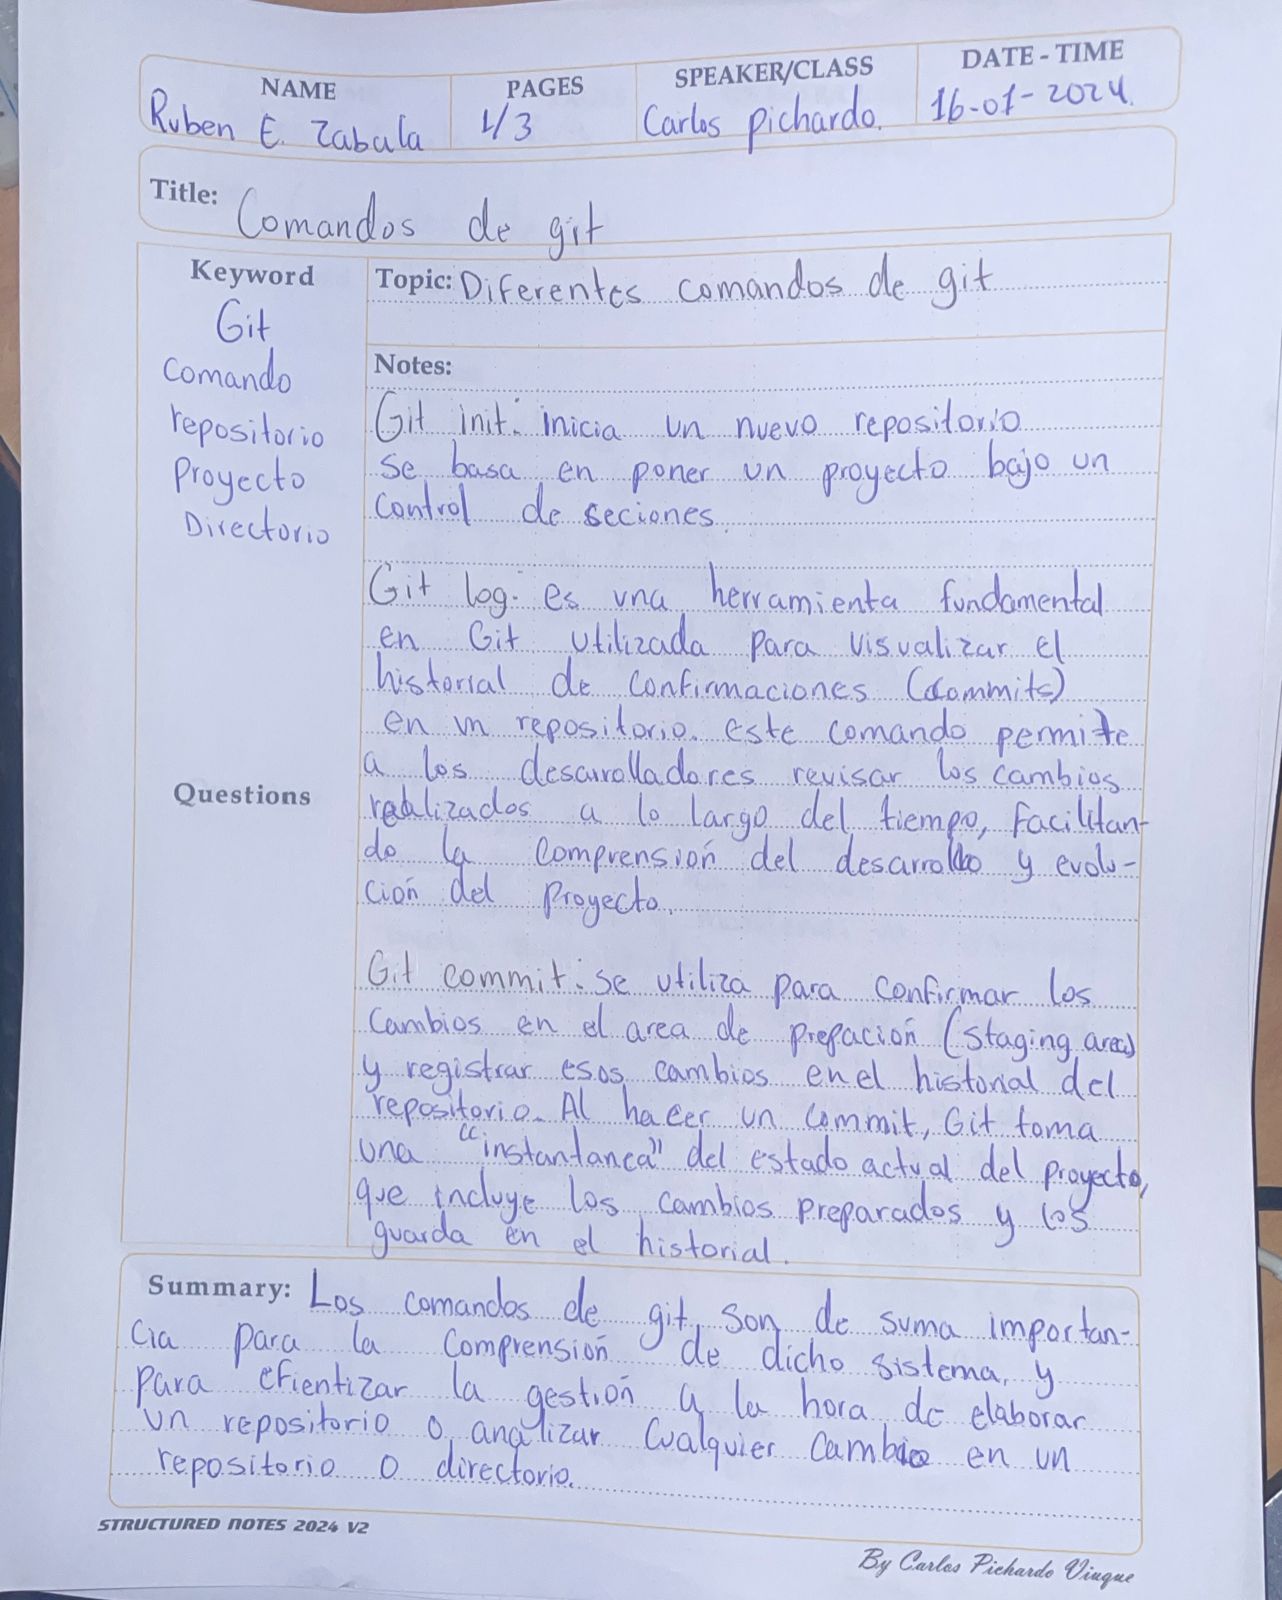 NAME PAGES SPEAKER/CLASS DATE - TIME
Ruben E. Zabala 1/3 Carlos pichardo. 16-01-2024.
Title: Comandos de git
Keyword
Git
Comando
repositorio
Proyecto
Directorio
Questions
Topic: Diferentes comandos de git
Notes:
Git init: inicia un nuevo repositorio
se basa en poner un proyecto bajo un
control de seciones.
Git log: es una herramienta fundamental
en Git utilizada para visualizar el
historial de confirmaciones (commits)
en un repositorio. este comando permite
a los desarrolladores revisar los cambios
realizados a lo largo del tiempo, facilitan-
do la comprensión del desarrollo y evolu-
ción del proyecto.
Git commit: se utiliza para confirmar los
cambios en el area de prepación (staging area)
y registrar esos cambios en el historial del
repositorio. Al hacer un commit, Git toma
una "instantanea" del estado actual del proyecto,
que incluye los cambios preparados y los
guarda en el historial.
Summary: Los comandos de git, son de suma importan-
cia para la comprensión de dicho sistema, y
para efientizar la gestión a la hora de elaborar
un repositorio o analizar cualquier cambio en un
repositorio o directorio.
STRUCTURED NOTES 2024 V2
By Carlos Pichardo Viuque